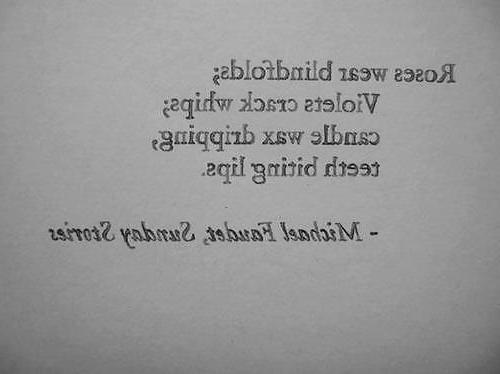 Roses wear blindfolds;
Violets crack whips;
candle wax dripping,
teeth biting lips.
- Michael Faudet, Sunday Stories